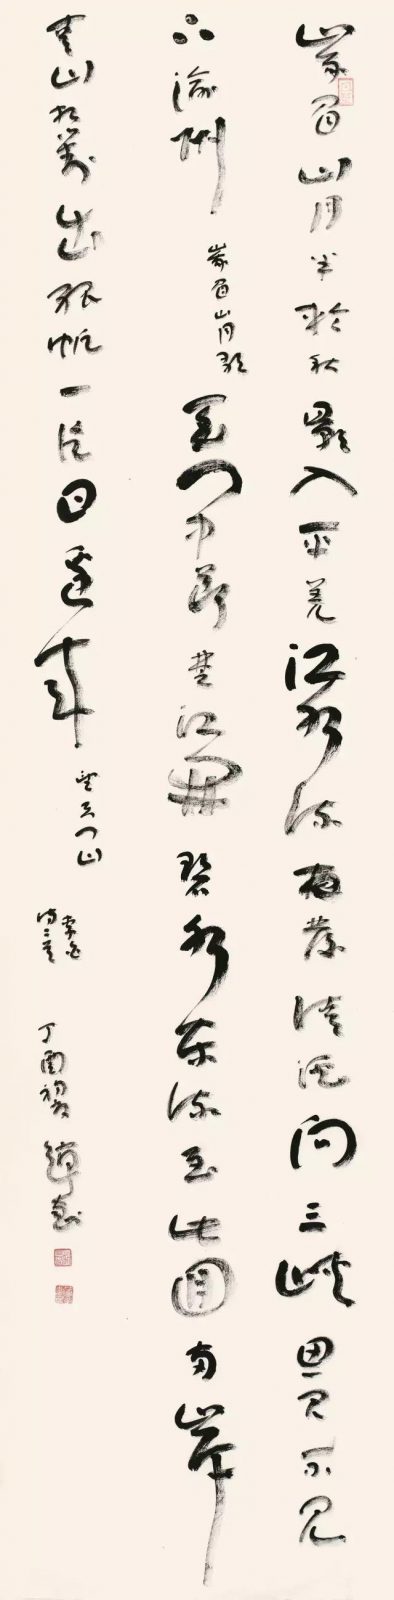 峩眉山月半輪秋影入平羌江水流夜發清溪向三峽思君不見
下渝州
峩眉山月歌
天門中斷楚江開碧水東流至此回兩岸
青山相對出孤帆一片日邊來
望天門山
李白
詩二首
丁酉